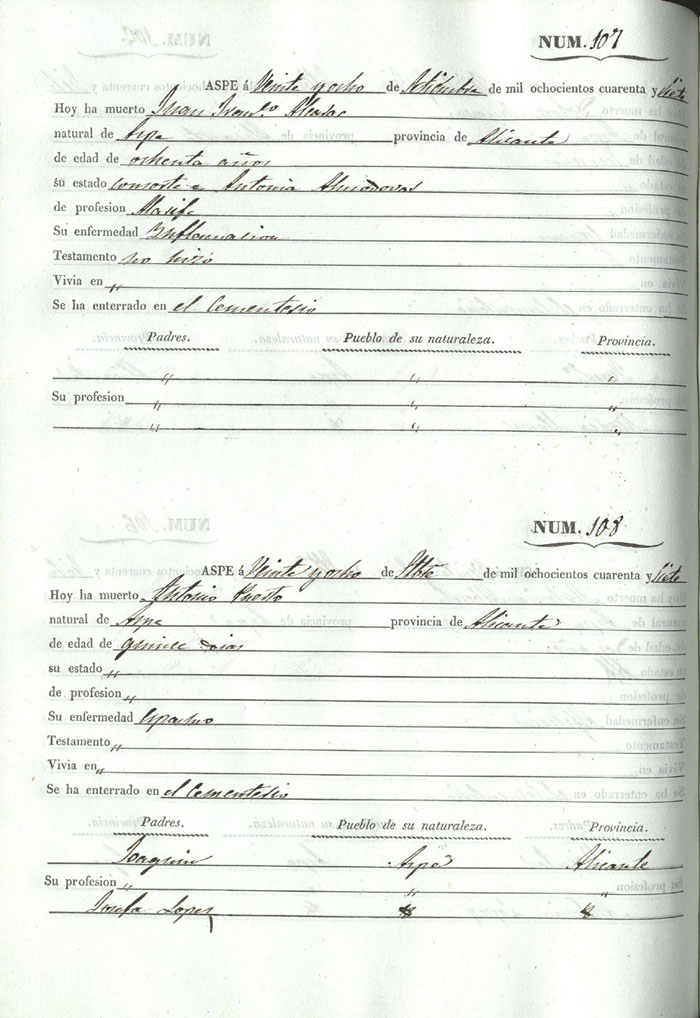 NUM. 107
ASPE á Veinte y ocho de Setiembre de mil ochocientos cuarenta y siete
Hoy ha muerto Juan Fran.co Alcaras
natural de Aspe provincia de Alicante
de edad de ochenta años
su estado consorte Antonia Almodovar
de profesion Alarife
Su enfermedad Inflamacion
Testamento no hizo
Vivia en „
Se ha enterrado en el Cementerio
Padres. Pueblo de su naturaleza. Provincia.
„ „ „
Su profesion „ „ „
„ „ „
NUM. 108
ASPE á Veinte y ocho de Stbre de mil ochocientos cuarenta y siete
Hoy ha muerto Antonio Puerto
natural de Aspe provincia de Alicante
de edad de quince dias
su estado „
de profesion „
Su enfermedad
Testamento „
Vivia en „
Se ha enterrado en el Cementerio
Padres. Pueblo de su naturaleza. Provincia.
Joaquin Aspe Alicante
Su profesion „ „ „
Josefa Lopez